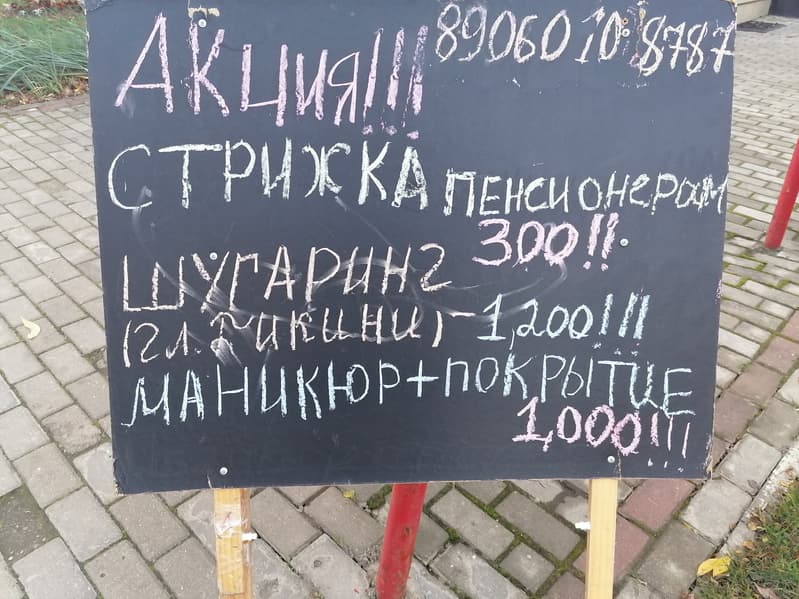 АКЦИЯ!!! 89060108787
СТРИЖКА ПЕНСИОНЕРАМ
300!!
ШУГАРИНГ
(ГЛ. БИКИНИ) - 1,200!!!
МАНИКЮР+ПОКРЫТИЕ
1,000!!!